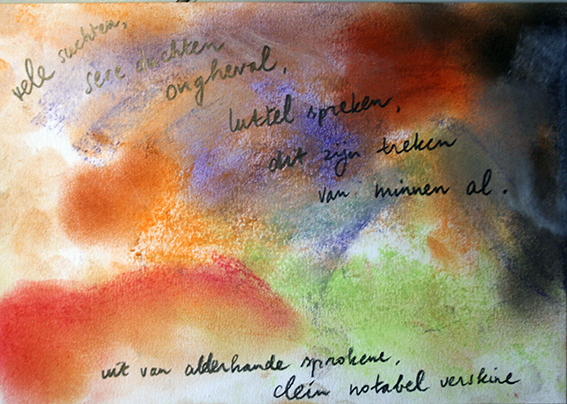 vele suchten,
sere duchten
ongheval,
luttel spreken,
dit zijn treken
van minnen al.
uit van alderhande sprokene,
clein notabel verskine